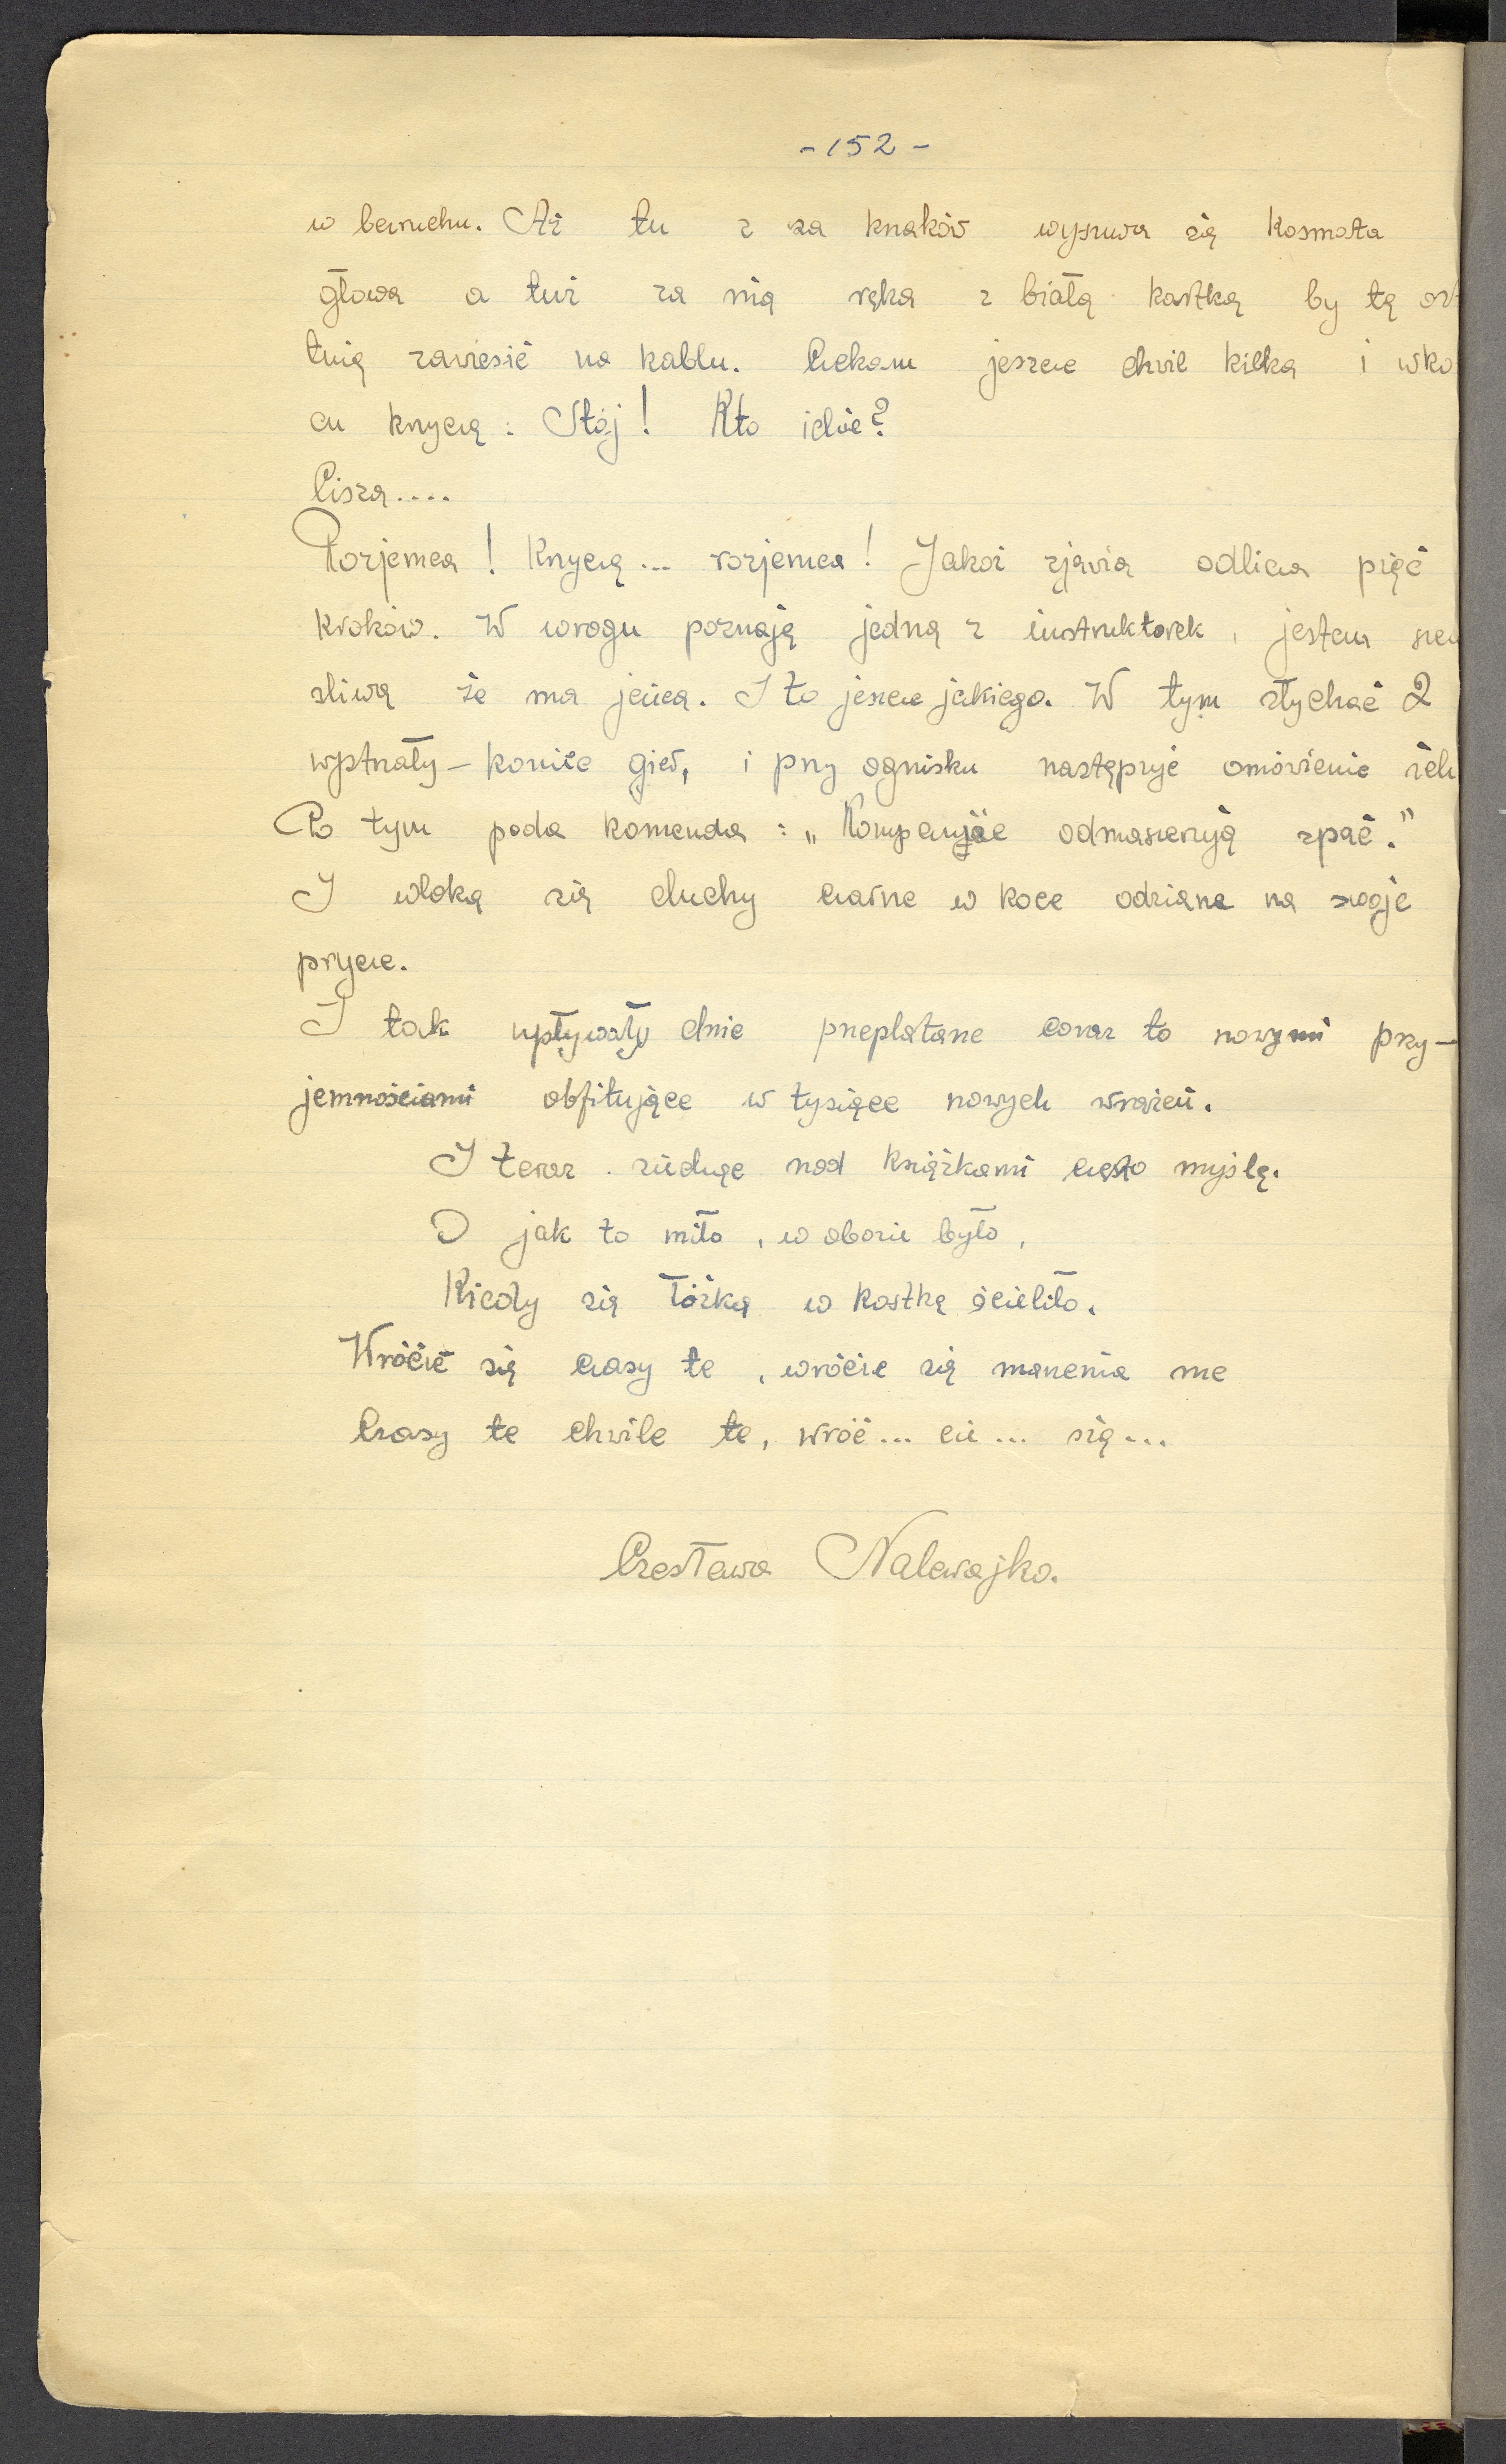 - 152 -
w bezruchu. Aż tu z za krzaków wysuwa się kosmata
głowa a tuż za nią ręka z białą kartką by tę os
tnią zawiesić na kablu. Czekam jeszcze chwil kilka i wko
cu krzyczę: Stój! Kto idzie?
Cisza....
Rozjemca! Krzyczę... rozjemca! Jakoż zjawia odlicza pięć
kroków. W wrogu poznaję jedną z instruktorek, jestem szcz
śliwą że ma jeńca. I to jeszcze jakiego. W tym słychać 2
wystrzały – koniec gier, i przy ognisku następuje omówienie
Po tym pada komenda: „Kompanije odmaszerują spać."
I wloką się duchy czarne w koce odziane na swoje
prycze.
I tak upływały dnie przeplatane coraz to nowymi przy-
jemnościami obfitujące w tysiące nowych wrażeń.
I teraz siedzęc nad książkami często myślę.
O jak to miło, w obozie było,
Kiedy się łóżka w kostkę ścieliło.
Wróćcie się czasy te, wróćcie się marzenia me
Czasy te chwile te, wróć... cie... się...
Czesława Nalewajko.